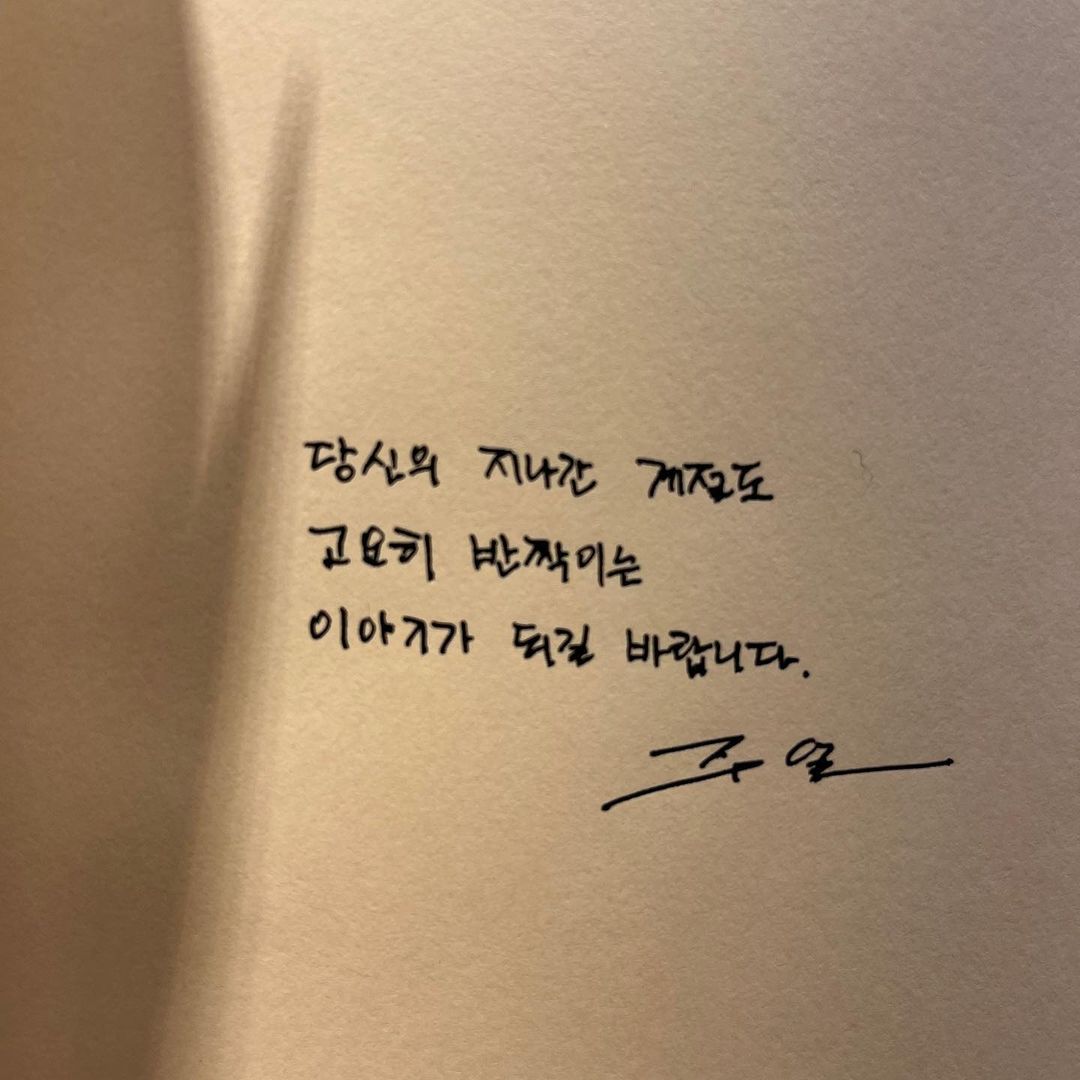 당신의 지나간 계절도
고요히 반짝이는
이야기가 되길 바랍니다.